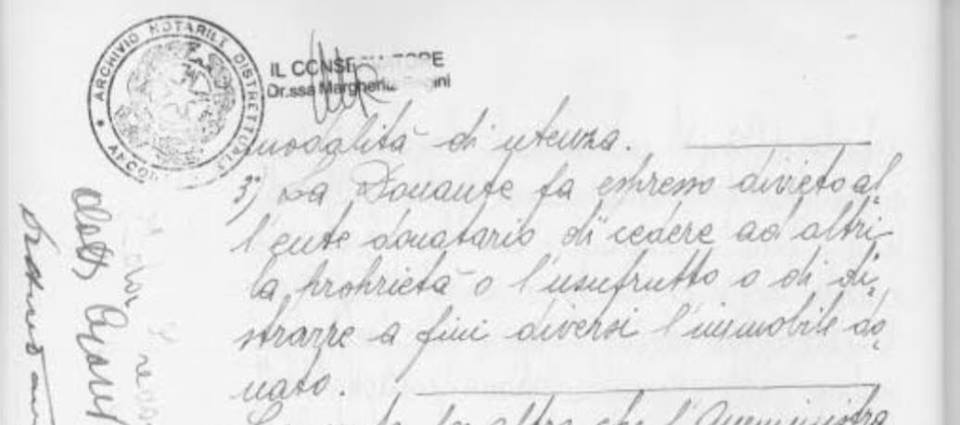 ARCHIVIO NOTARILE DISTRETTUALE
ANCO
IL CONSERVATORE
Dr.ssa Margherita
modalità di utenza.
3°) La Donante fa espresso divieto al-
l'ente donatario di cedere ad altri
la proprietà o l'usufrutto o di di-
strarre a fini diversi l'immobile do-
nato.
altro che l'Amministra